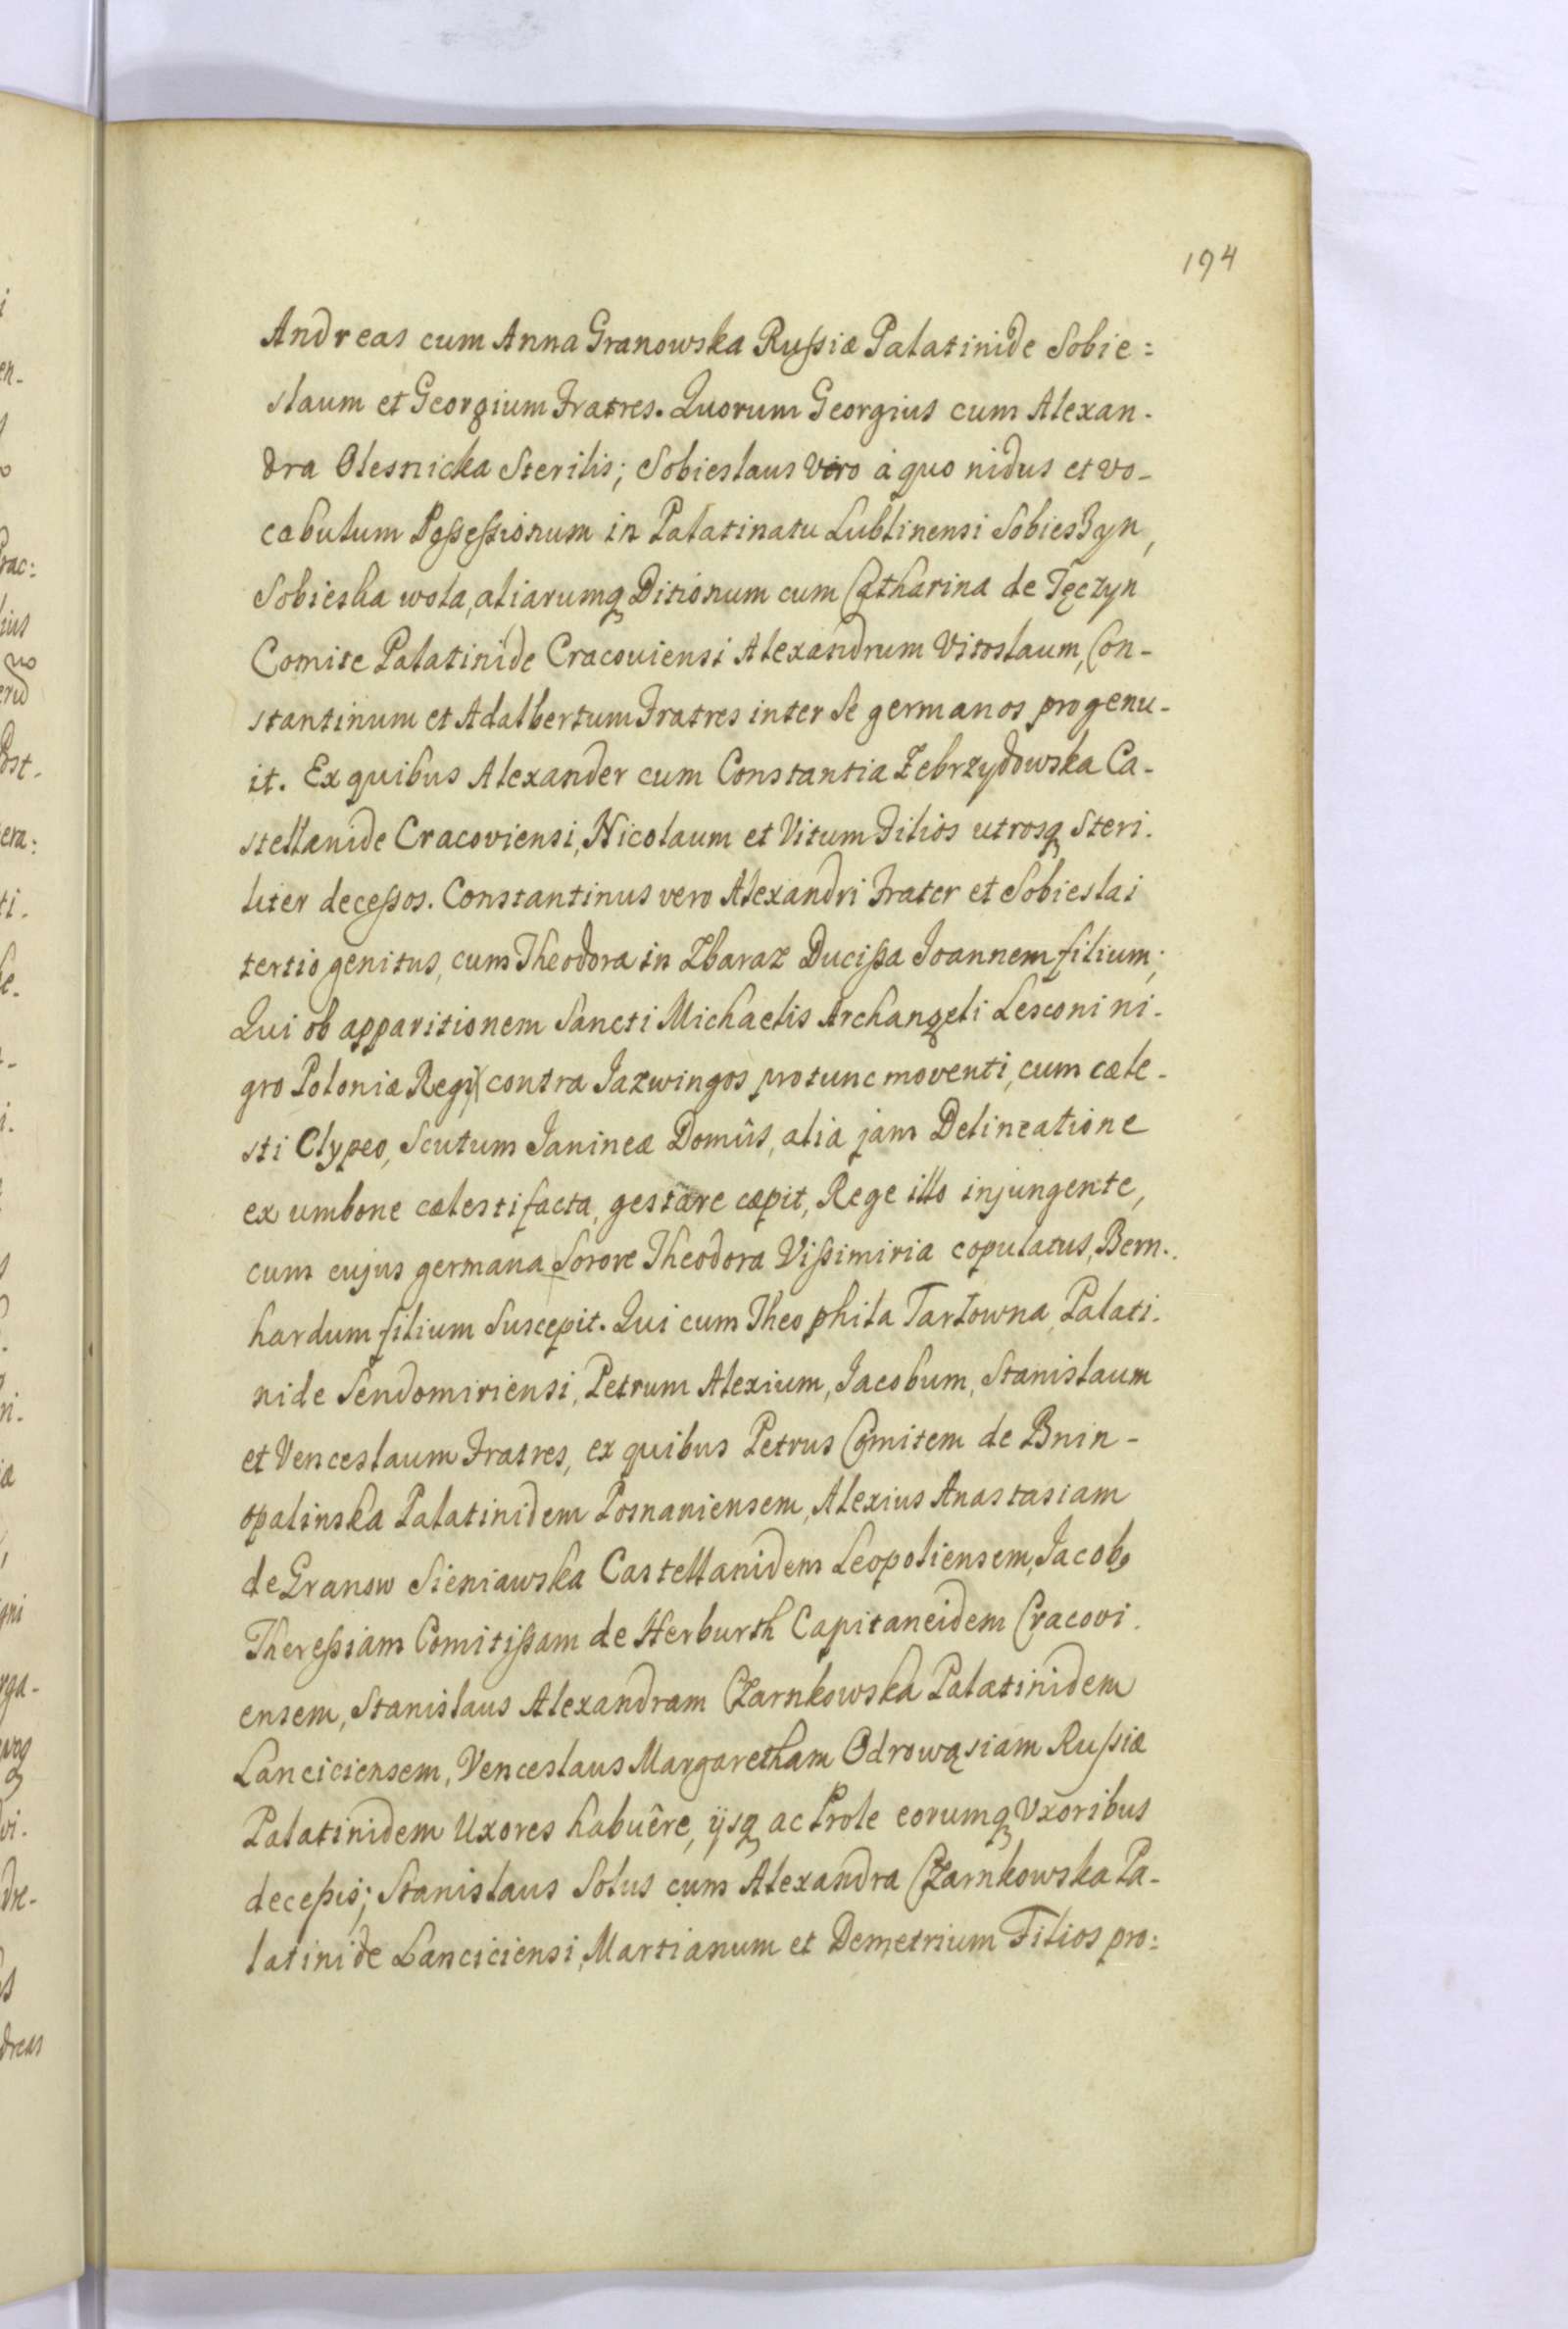 194
Andreas cum Anna Granowska Rußiæ Palatinide Sobie=
slaum et Georgium Fratres. Quorum Georgius cum Alexan-
dra Olesnicka Sterilis; Sobieslaus Vero à quo nidus et vo-
cabulum Poßeßionum in Palatinatu Lublinensi Sobieszyn,
Sobieska wola, aliarumq Ditionum cum Catharina de Tęczyn
Comite Palatinide Cracoviensi Alexandrum Vitoslaum, Con-
stantinum et Adalbertum Fratres inter Se germanos progenu-
it. Ex quibus Alexander cum Constantia Zebrzydowska Ca-
stellanide Cracoviensi, Nicolaum et Vitum Filios utrosq Steri-
liter deceßos. Constantinus vero Alexandri Frater et Sobieslai
tertio genitus, cum Theodora in Zbaraz Ducißa Ioannem filium;
Qui ob apparitionem Sancti Michaelis Archangeli Lesconi ni-
gro Poloniæ Regi contra Jazwingos protunc moventi, cum cæle-
sti Clypeo, Scutum Janineæ Domûs, alia jam Delineatione
ex umbone cælesti facta, gestare cæpit, Rege illo injungente,
cum cujus germana Sorore Theodora Vißimiria copulatus, Bern-
hardum filium Suscepit. Qui cum Theophila Tarłowna, Palati-
nide Sendomiriensi, Petrum Alexium, Jacobum, Stanislaum
et Venceslaum Fratres, ex quibus Petrus Comitem de Bnin-
opalinska Palatinidem Posnaniensem, Alexius Anastasiam
de Granow Sieniawska Castellanidem Leopoliensem, Jacob9
Thereßiam Comitißam de Herburth Capitaneidem Cracovi-
ensem, Stanislaus Alexandram Czarnkowska Palatinidem
Lanciciensem, Venceslaus Margaretham Odrowąsiam Rußiæ
Palatinidem Uxores habuêre, ijsq ac Prole eorumq Uxoribus
deceßis; Stanislaus Solus cum Alexandra Czarnkowska Pa-
latinide Lanciciensi, Martianum et Demetrium Filios pro=